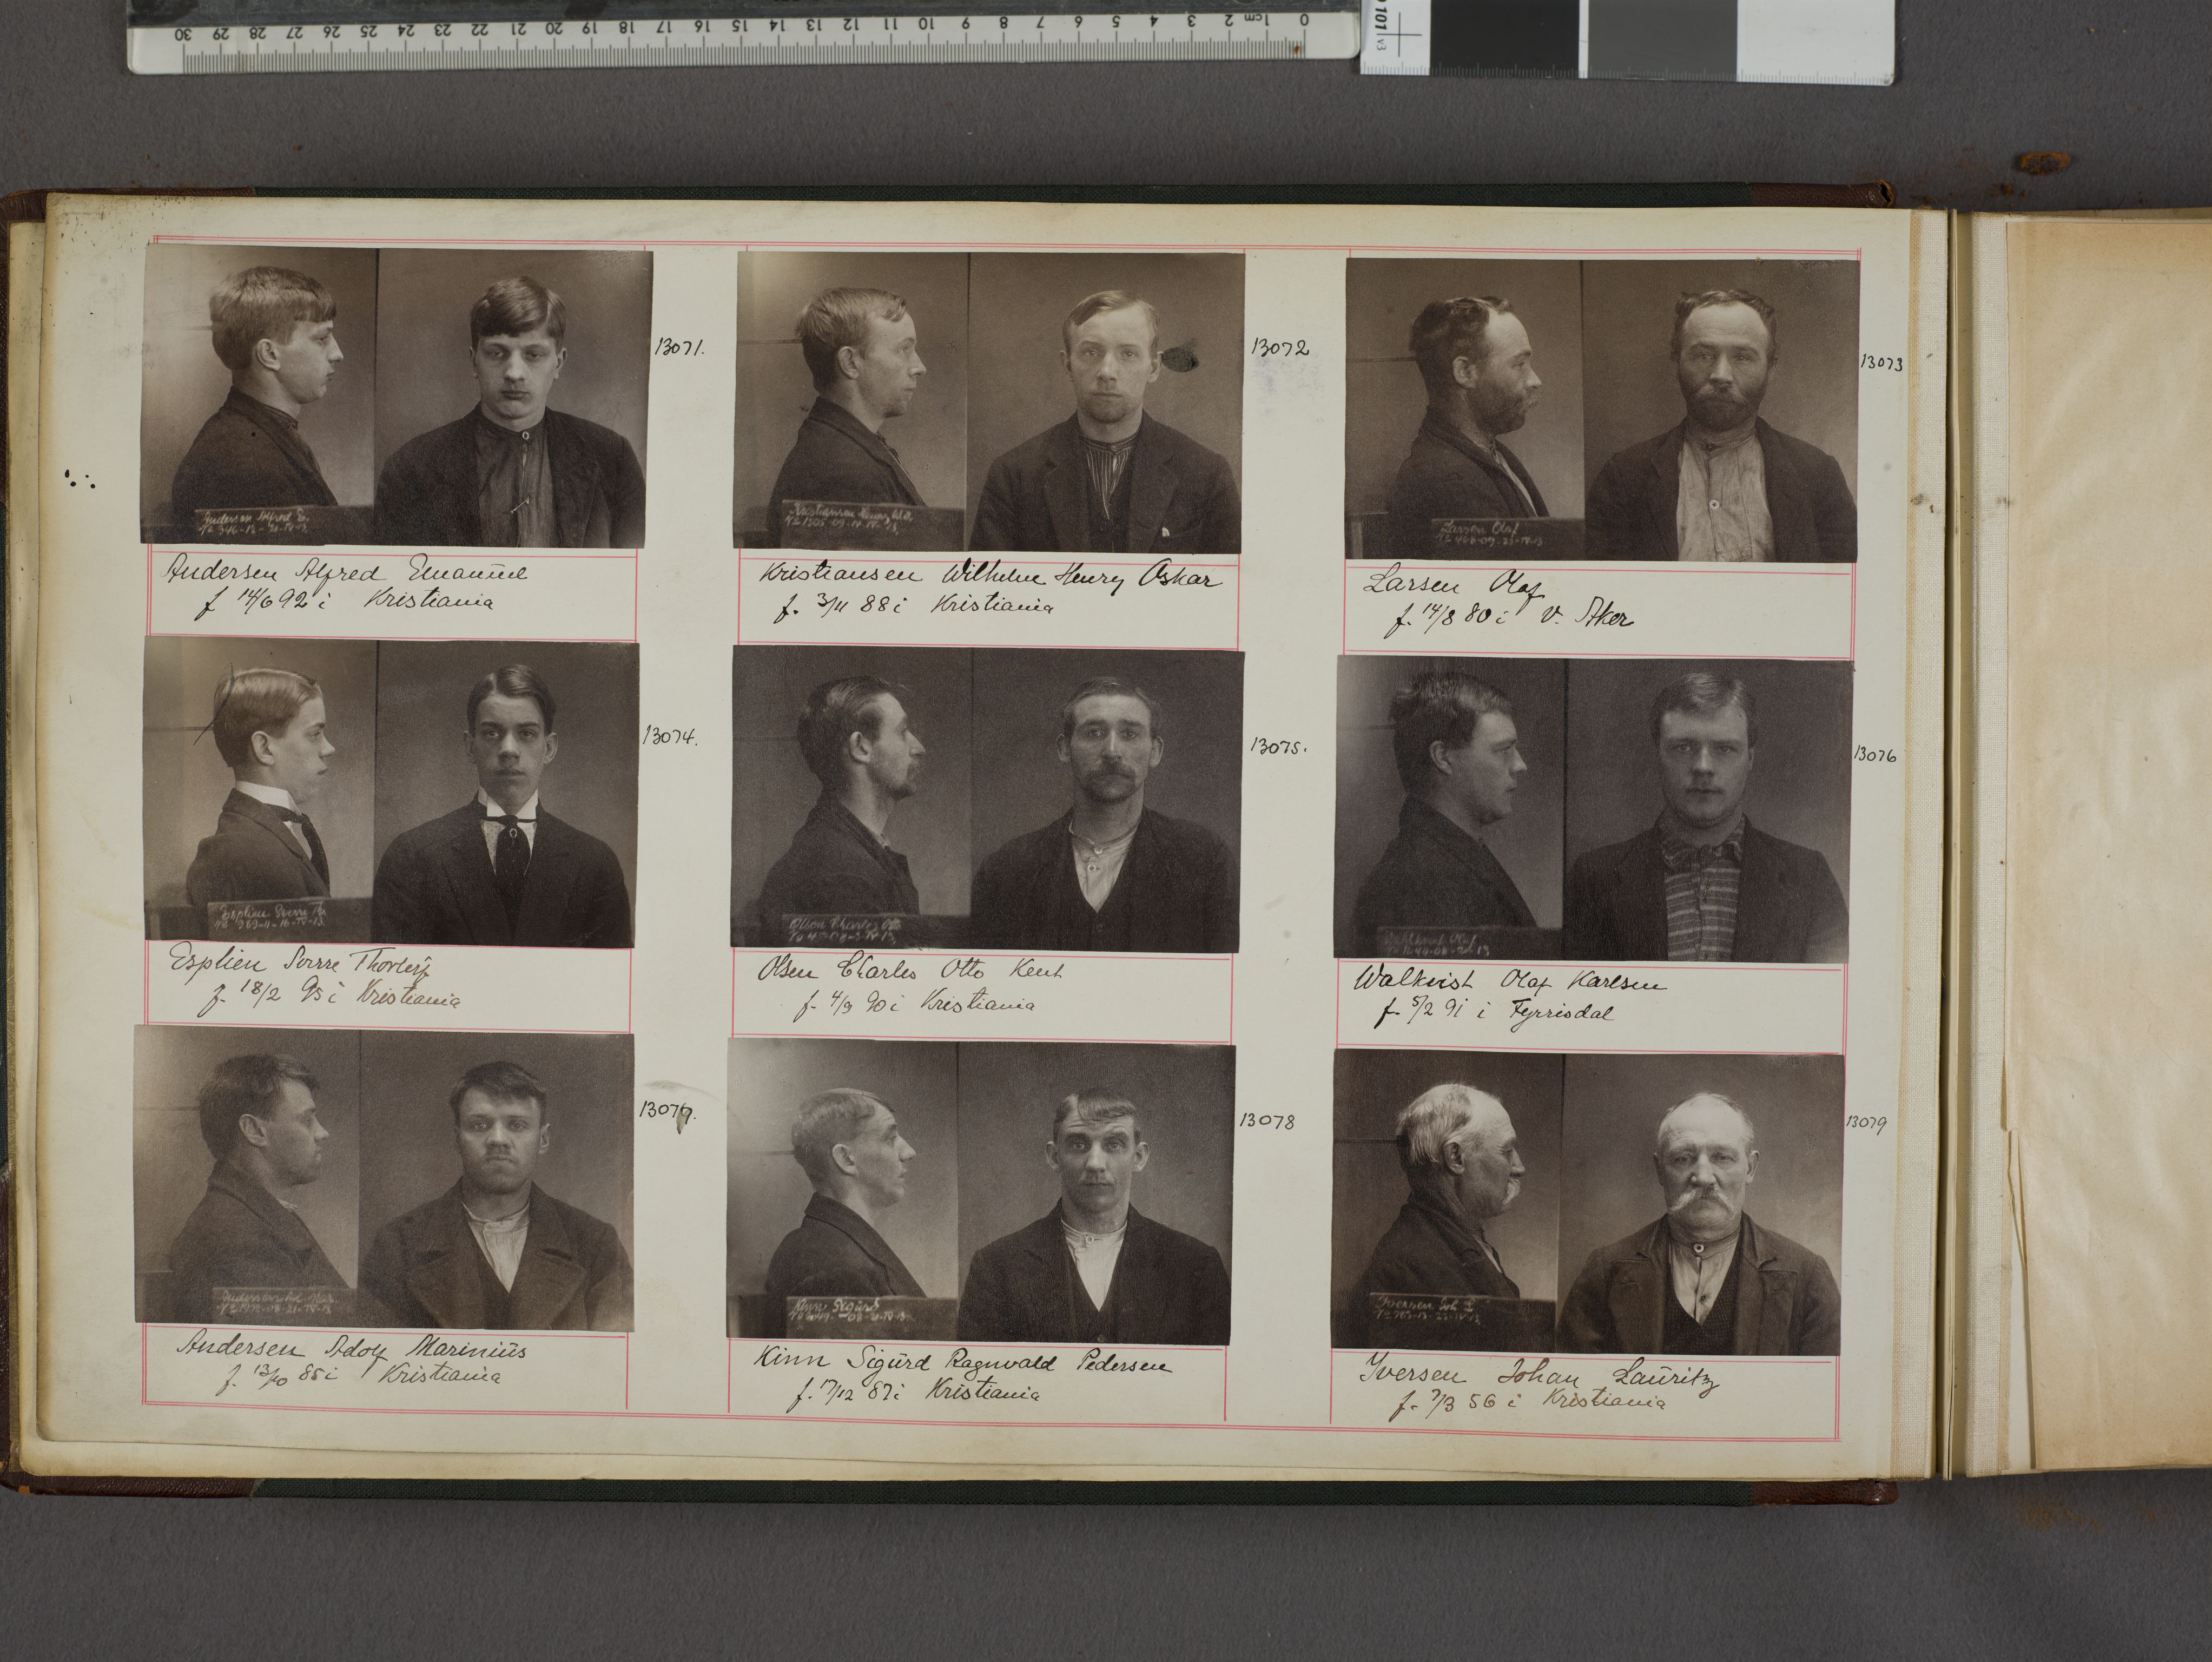 30 29 28 27 26 25 24 23 22 21 20 19 18 17 16 15 14 13 12 11 10 9 8 7 6 5 4 3 2 1cm 0
101 v3
13071.
Andersen Alfred E.
Andersen Alfred Emanuel
f 14/6 92 i Kristiania
13072
Kristiansen Wilhelm Henry Oskar
f. 3/11 88 i Kristiania
13073
Larsen Olaf
Larsen Olaf
f. 14/8 80 i V. Aker
13074.
Esplien Sverre Th.
Esplien Sverre Thorleif
f. 18/2 95 i Kristiania
13075.
Olsen Charles Otto
Olsen Charles Otto Kent
f. 4/9 90 i Kristiania
13076
Walkvist Olaf Karlsen
f. 5/2 91 i Fyrrisdal
13077.
Andersen Ad. Mar.
Andersen Adolf Marinius
f. 13/10 85 i Kristiania
13078
Kinn Sigurd
Kinn Sigurd Ragnvald Pedersen
f. 17/12 87 i Kristiania
13079
Iversen Joh. L.
Iversen Johan Lauritz
f. 7/3 56 i Kristiania